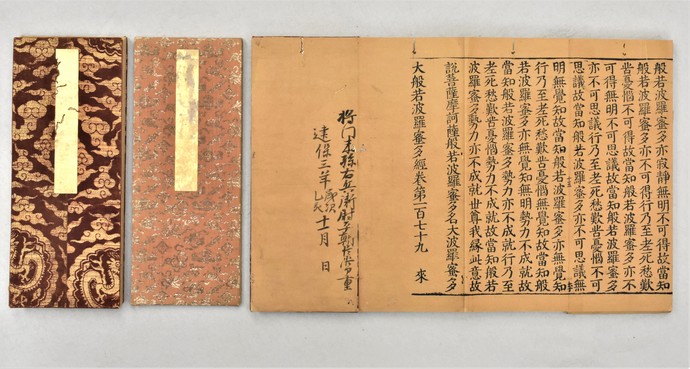 般若波羅蜜多亦寂靜無明不可得故當知
般若波羅蜜多亦不可得行乃至老死愁歎
苦憂惱不可得故當知般若波羅蜜多亦不
可得無明不可思議故當知般若波羅蜜多
亦不可思議行乃至老死愁歎苦憂惱不可
思議故當知般若波羅蜜多亦不可思議無
明無覺知故當知般若波羅蜜多亦無覺知
行乃至老死愁歎苦憂惱無覺知故當知般
若波羅蜜多亦無覺知無明勢力不成就故
當知般若波羅蜜多勢力亦不成就行乃至
老死愁歎苦憂惱勢力不成就故當知般若
波羅蜜多勢力亦不成就世尊我緣此意故
說菩薩摩訶薩般若波羅蜜多名大波羅蜜多
大般若波羅蜜多經卷第一百七十九 來
将門末孫右兵衛尉平
建保三年歳次乙亥十一月 日